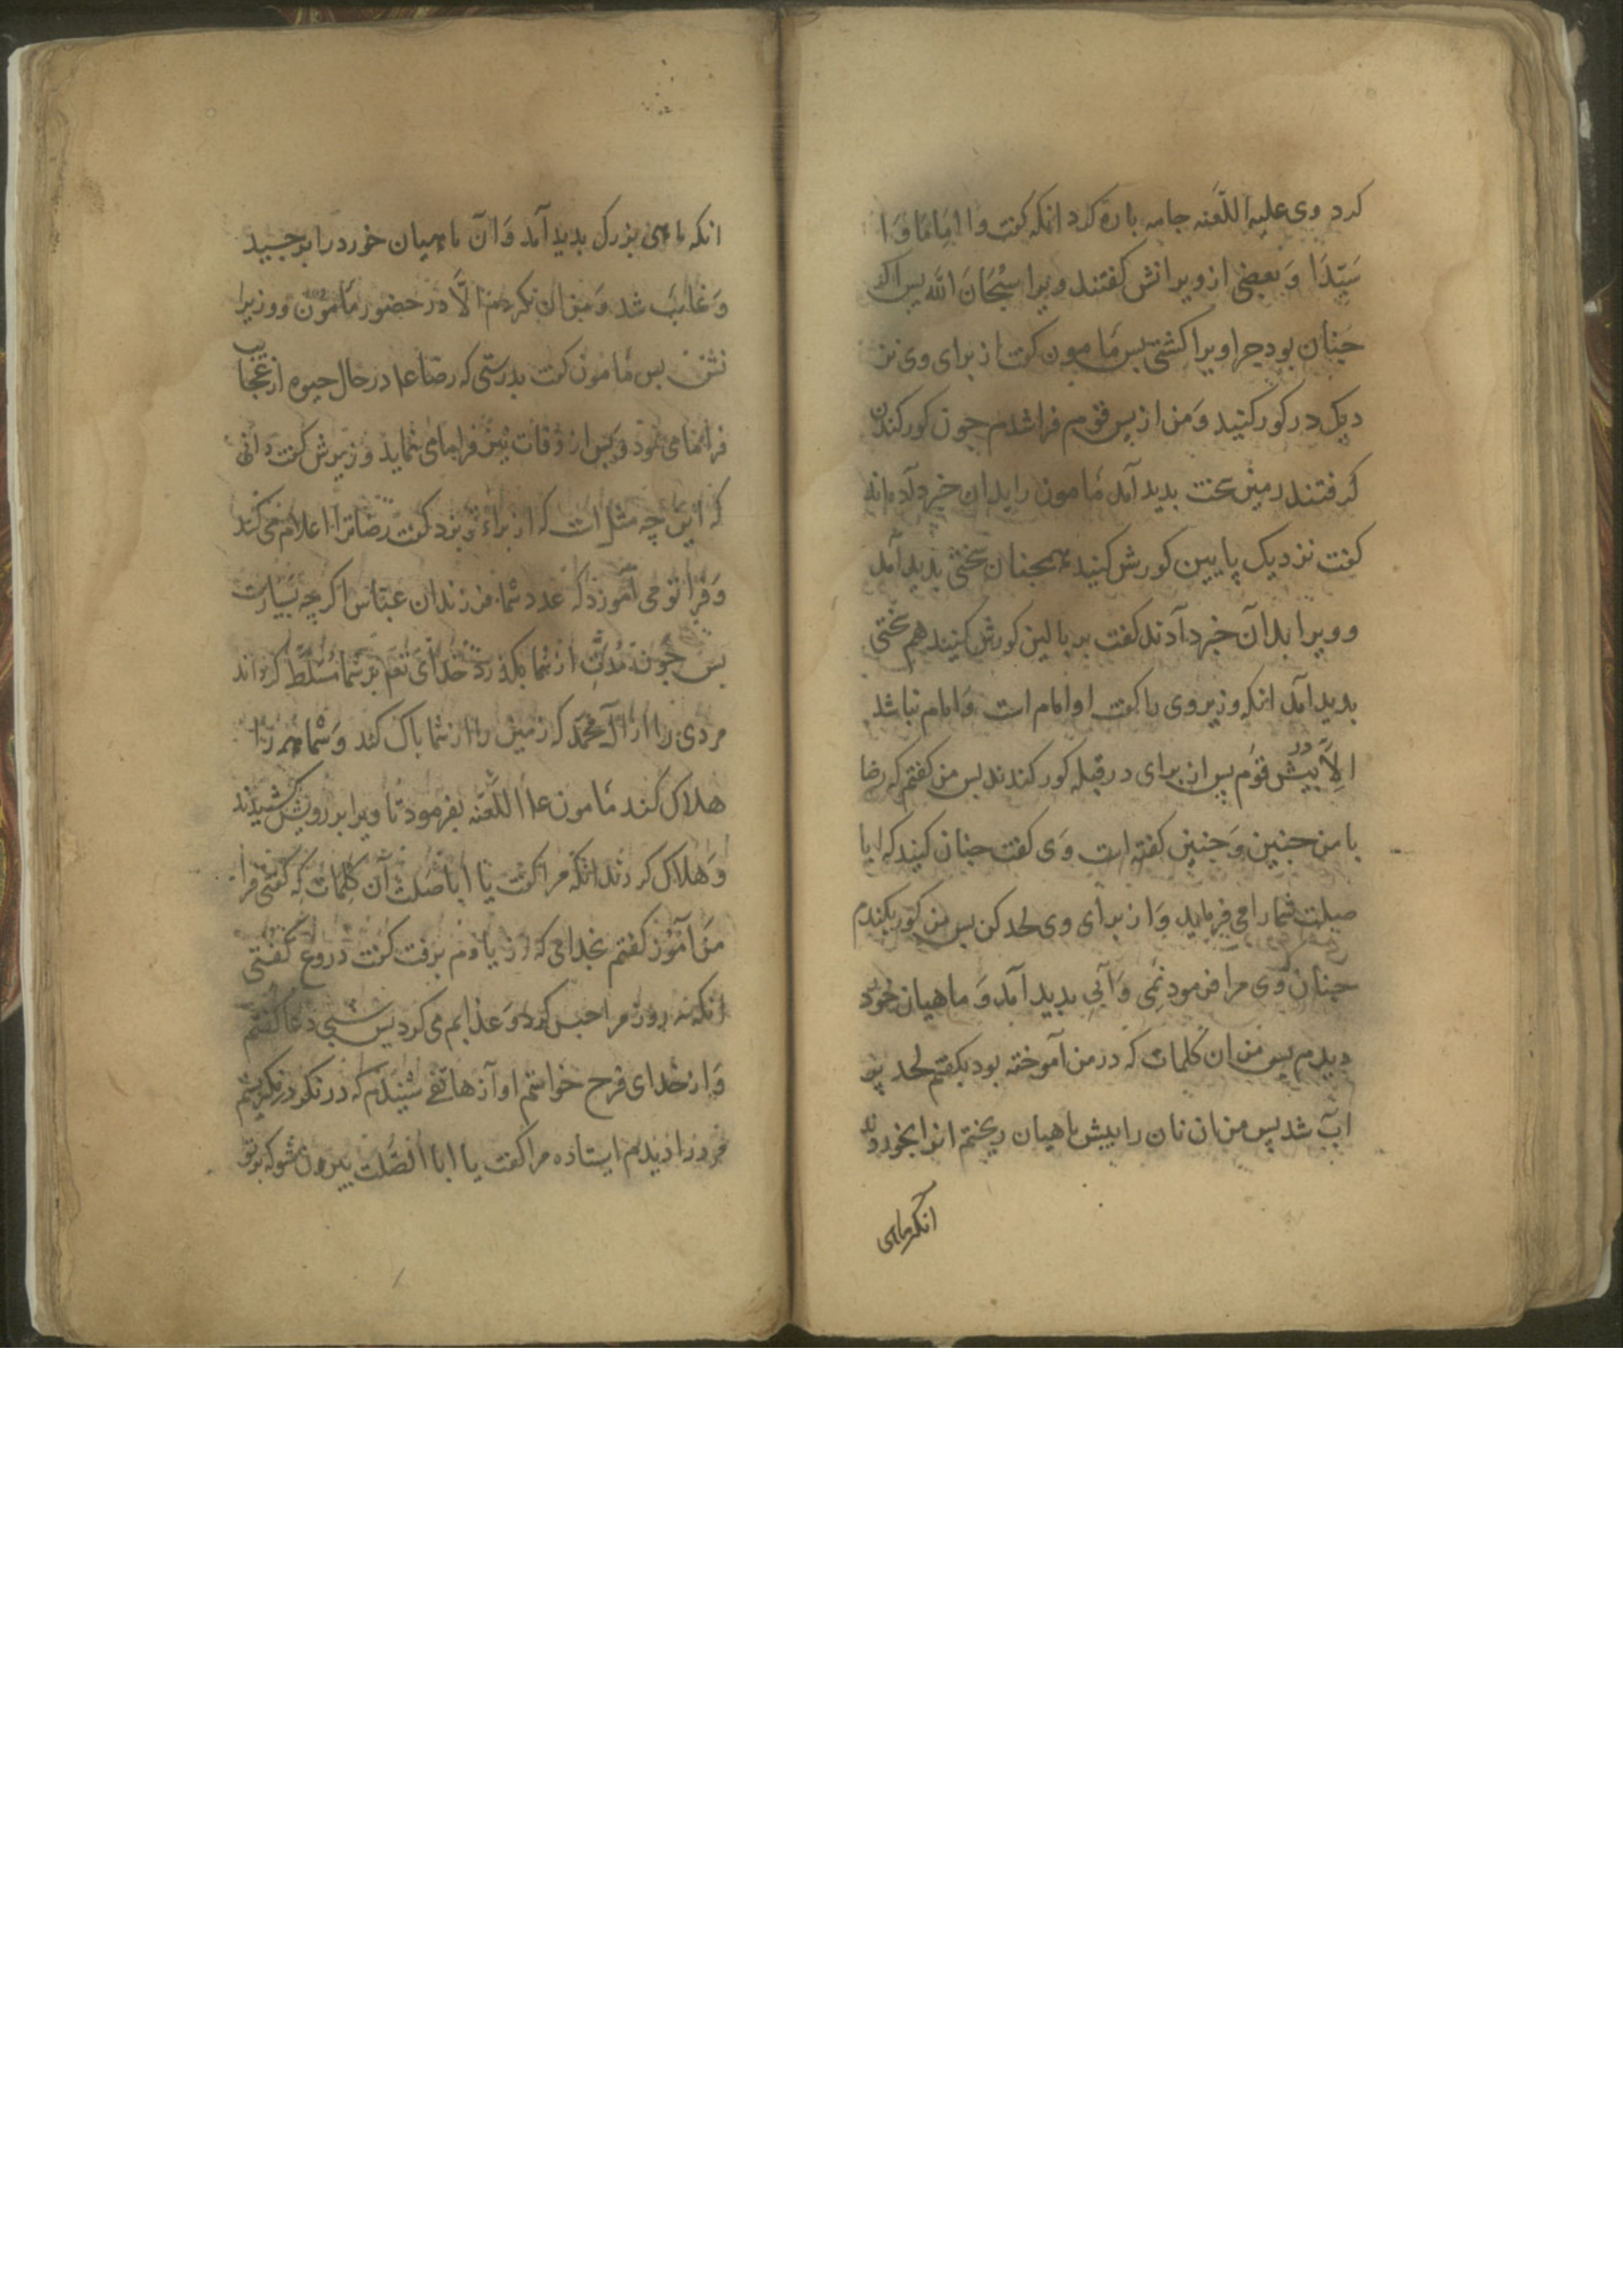 کرد وی علیه اللعنه جامه باره کرد انکه کفت وا امَامَا وَا
سَیّدَا وَ بعضی از ویرانش کفتند ویرا سُبْحَانَ اللّه بس اکر
جنان بود جرا ویرا کشتی بس مَامون کفت از برای وی نز
دیک در کور کنید وَ من از بس قوم فرا شدم جون کور کندن
کرفتند زمین سخت بدید آمد مَامون را بدان خبر دادند
کفت نزدیک پایین کورش کنید همجنان سختی بدید آمد
و ویرا بدان خبر دادند کفت بر بالین کورش کنید هم سختی
بدید آمد انکه وزیر وی را کفت او امام است وَ امام نباشد
الاَّ در بیش قوم بس از برای در قبله کور کندند بس من کفتم که رضا
با من جنین وَ جنین کفته است وَی کفت جنان کنید که ابا
صلت شما را می فرماید وَ از برای وی لحد کن بس من کور بکندم
جنان وی مرا فرمود نَمی وَ آبی بدید آمد وَ ماهیان خورد
دیدم بس من ان کلمات که در من آموخته بود بکفتم لحد پر
آب شد پس من ان نان را بیش ماهیان ریختم انرا بخوردند
انکه ماهی
انکه ماهی بزرک بدید آمد وَ ان ماهیان خورد را برجیید
وَ غایب شد وَ من ان نکردم الاَّ در حضور مَامون و وزیرا
نش بس مَامون کفت بدرستی که رضا عا در حال حیوه از عجایب
فرا نما می نمود وَ بس از وَفات نیز فرا ما می نماید وَزیرش کفت دانی
که این چه مثل است که از براء تو بزد کفت رضا ترا اعلام می کند
وَ فرا تو می آموزد که عدد شما فرزندان عبّاس اکر چه بسیارست
بس چون مُدّتِ از شما بکذرد خدای تعَ بر شما مُسَلَّط کرداند
مردی را از آل محمّد که زمین را از شما باک کند وَ شما همه را
هلاک کند مَامون عا اللَّعنه بفرمود تا ویرا بر رویش کشیدند
وَ هلاک کردند انکه مرا کفت یا ابا صلت آن کلمات که کفتی مرا
من آموز کفتم بخدای که از یادم برفت کفت دروغ کفتی
انکه نه روز مرا حبس کرد وَ عذابم می کرد بس شبی دعا کفتم
وَ از خدای فرج خواستم اوآز هاتفے شنیدم که در نکر در نکریستم
فروز ا دیدم ایستاده مرا کفت یا ابا الصَّلت بیرون شو که بر تو